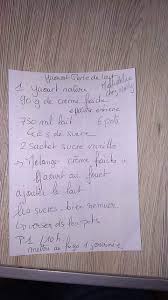 Yaourt Perle de lait
1 Yaourt nature
90 g de crème fraîche
epaisse entière
750 ml lait 6 pots
40 g de sucre
2 sachet sucre vanillé
Melange crème fraîche
Yaourt au fouet
ajouter le lait
les sucres bien remuer
verser ds les pots
P1 / 10 h
mettre au frigo 1 journée